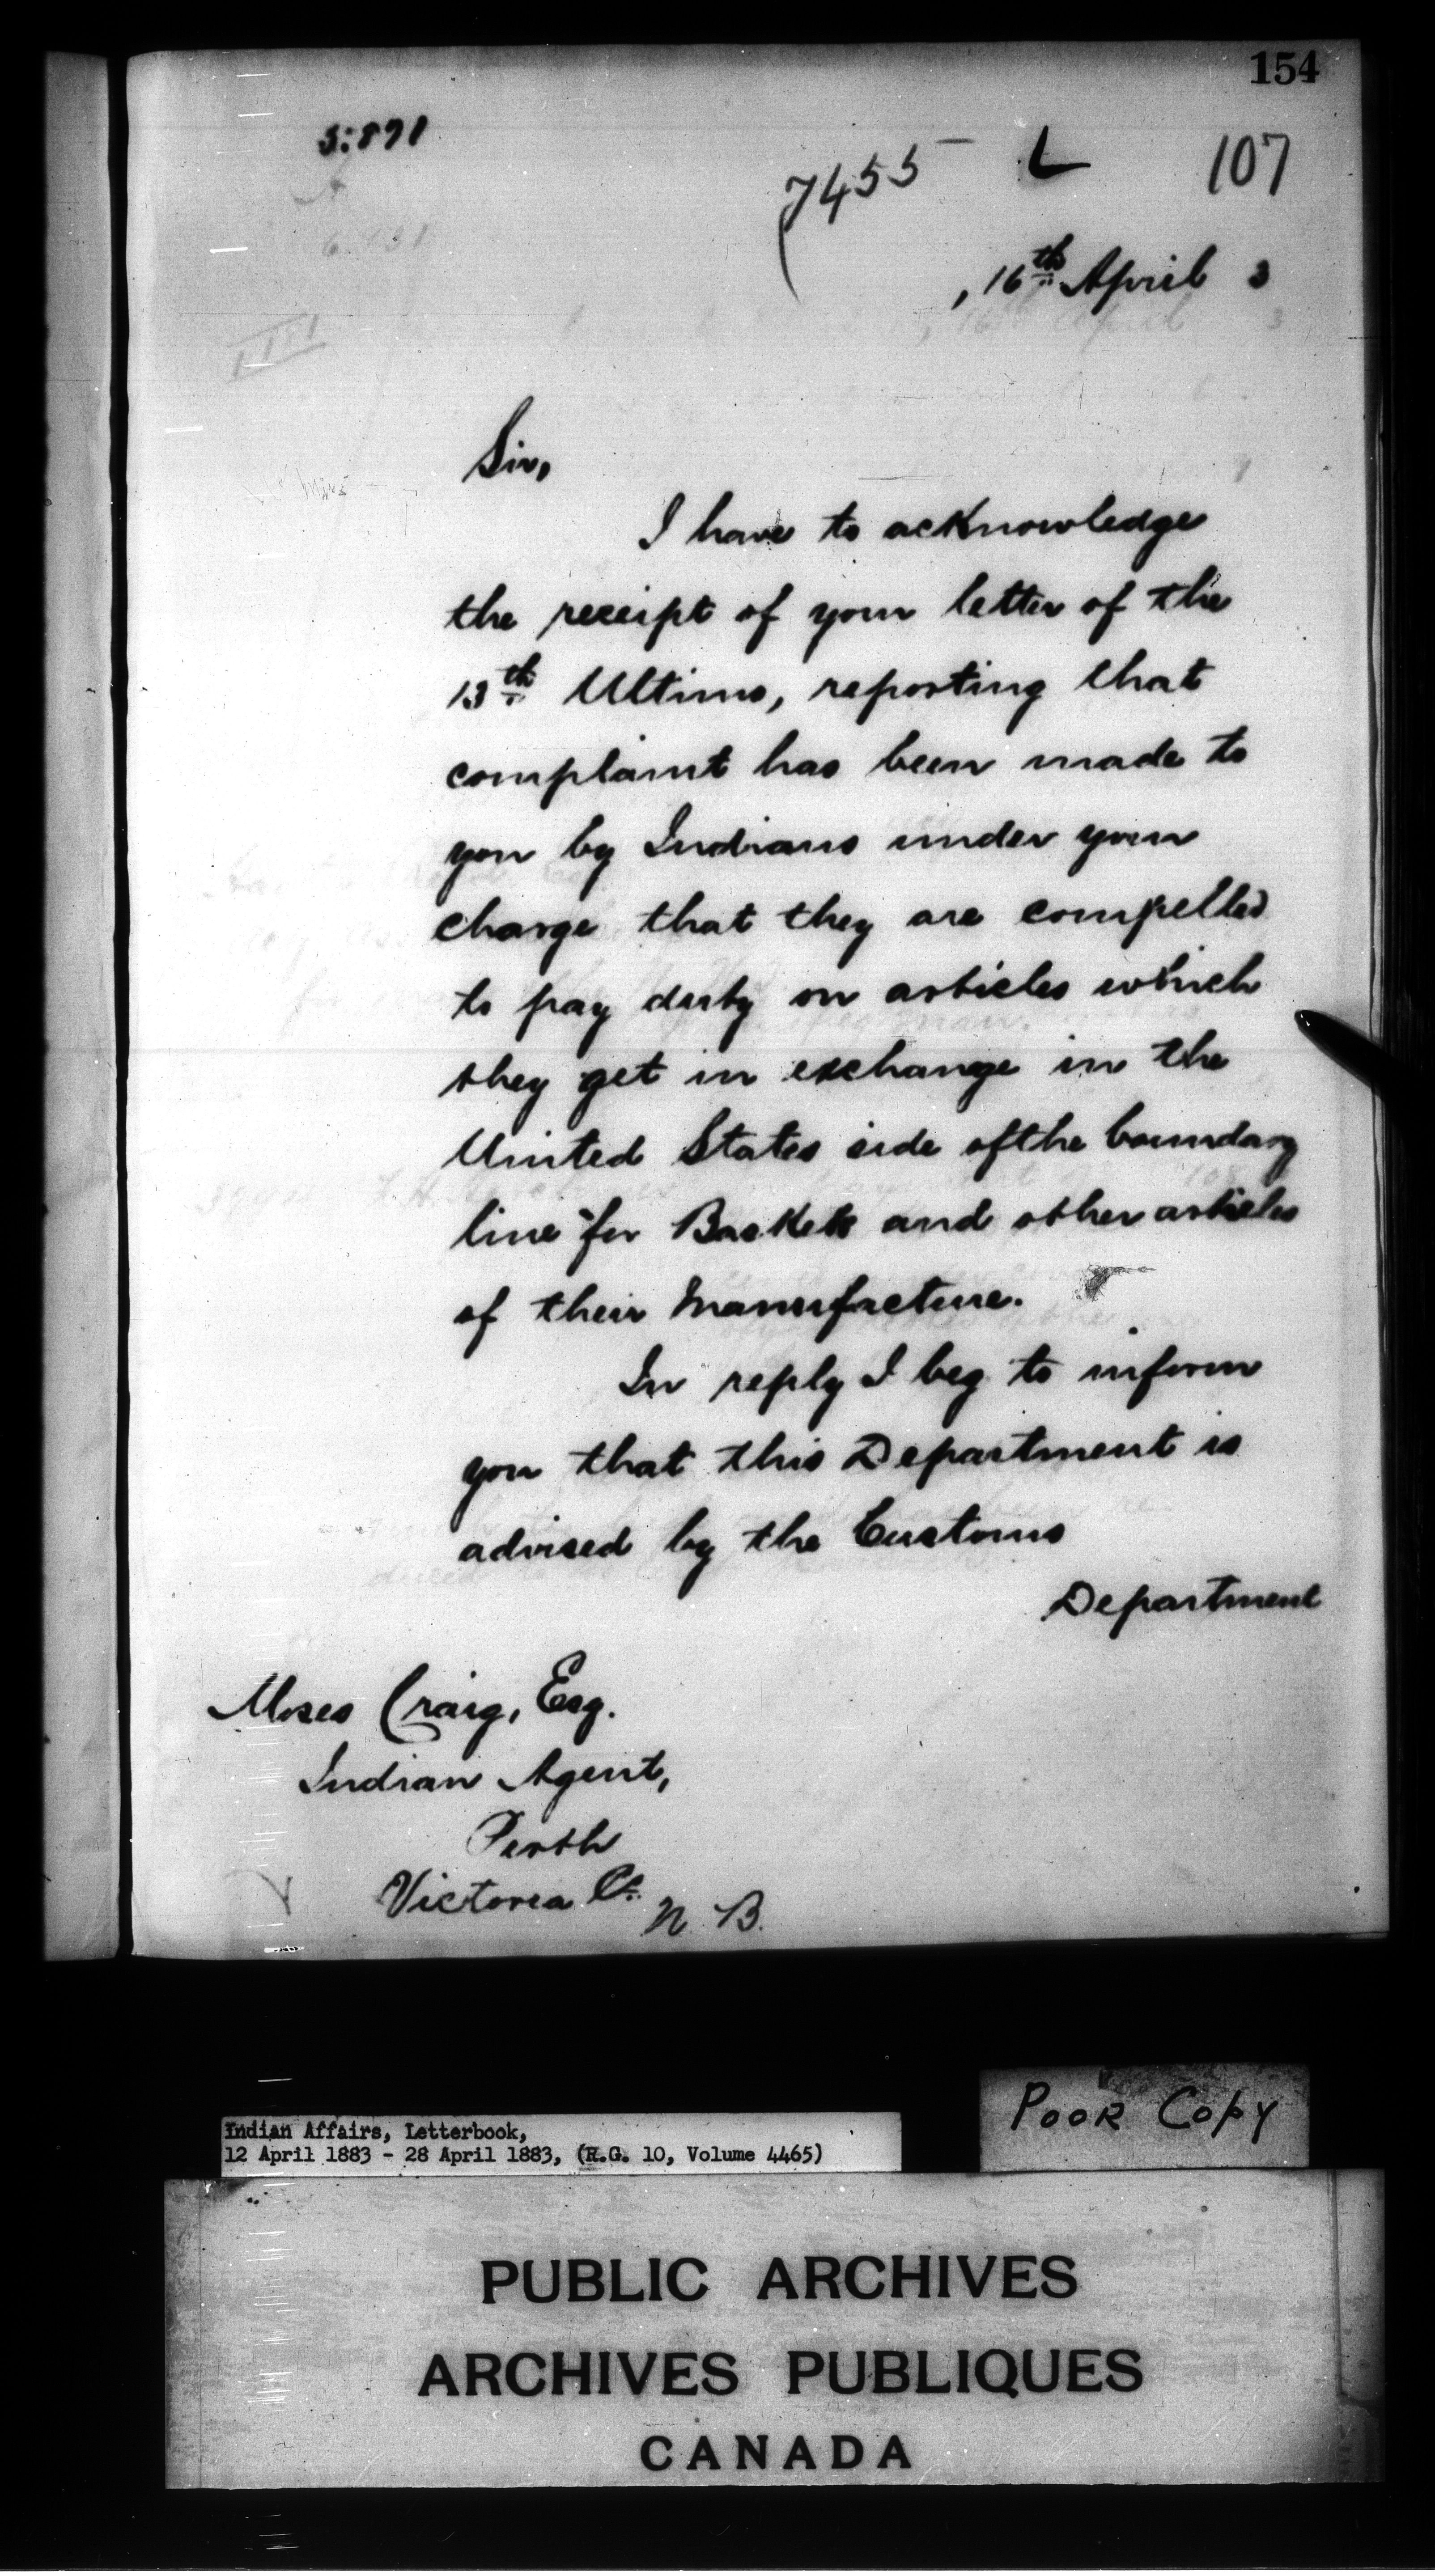 154
5:871
7455 L 107
, 16th April 3
Sir,
I have to acknowledge
the receipt of your letter of the
13th Ultimo, reporting that
complaint has been made to
you by Indians under your
charge that they are compelled
to pay duty on articles which
they get in exchange in the
United States side of the boundary
line for Baskets and other articles
of their Manufacture.
In reply I beg to inform
you that this Department is
advised by the Customs
Department
Moses Craig, Esq.
Indian Agent,
Perth
Victoria Co.
N. B.
Poor Copy
Indian Affairs, Letterbook,
12 April 1883 - 28 April 1883, (R.G. 10, Volume 4465)
PUBLIC ARCHIVES
ARCHIVES PUBLIQUES
CANADA